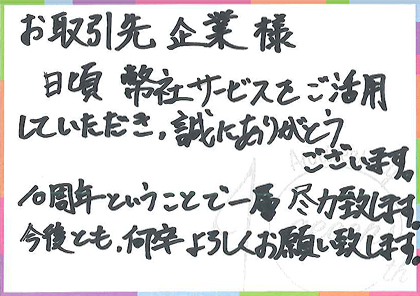 お取引先 企業 様
日頃 弊社サービスをご活用
していただき、誠にありがとう
ございます。
10周年ということで一層 尽力致します。
今後とも、何卒よろしくお願い致します。